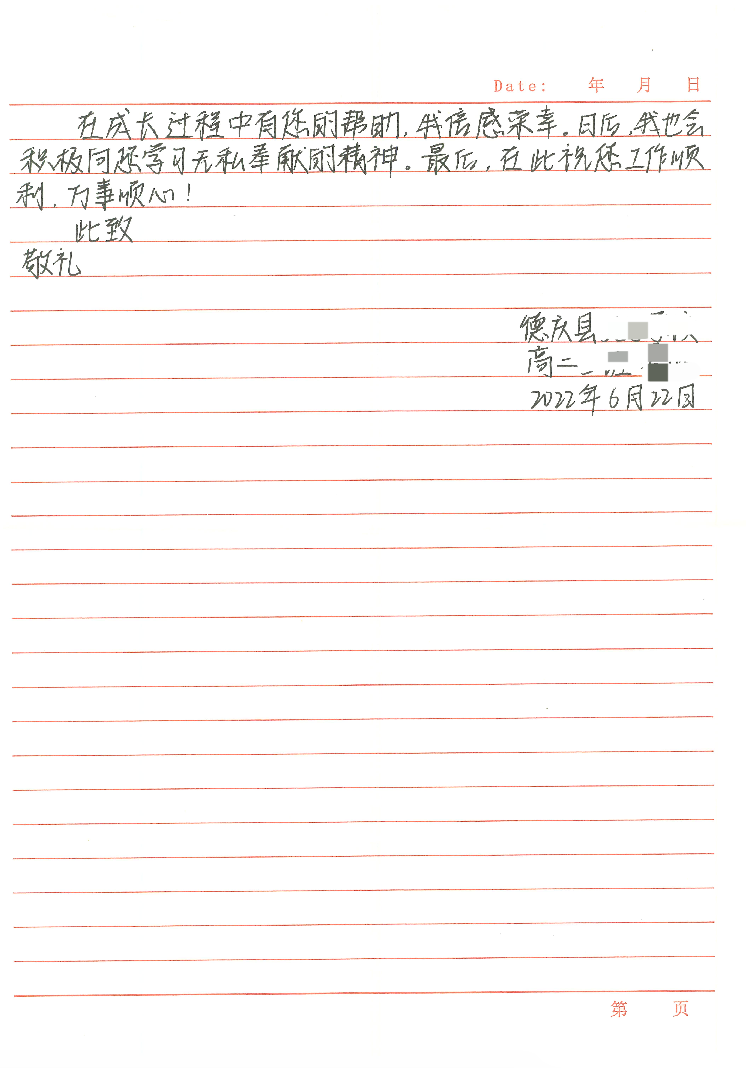 Date: 年 月 日
在成长过程中有您的帮助，我倍感荣幸。日后，我也会
积极向您学习无私奉献的精神。最后，在此祝您工作顺
利，万事顺心！
此致
敬礼
德庆县
高二
2022年6月22日
第 页